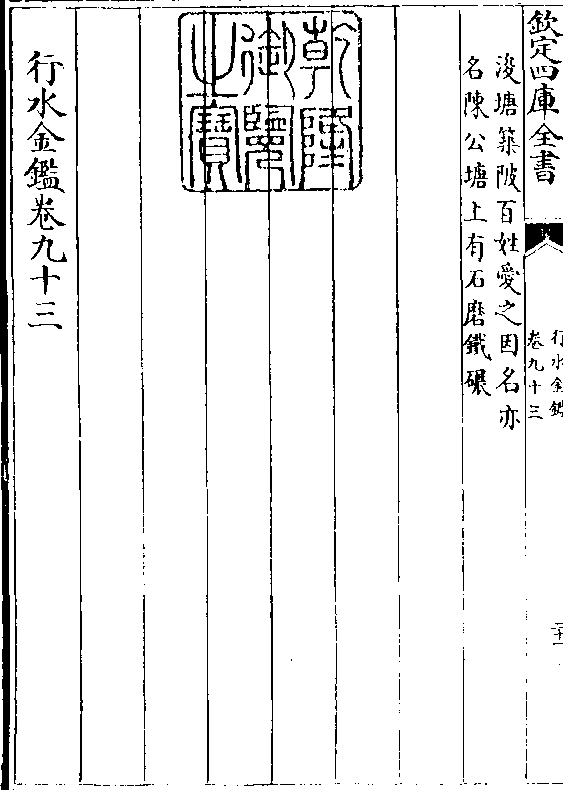 欽定四庫全書
行水金鑑
卷九十三
浚塘築陂百姓愛之因名亦
名陳公塘上有石磨鐵碾
乾隆
御覽
之寶
行水金鑑卷九十三